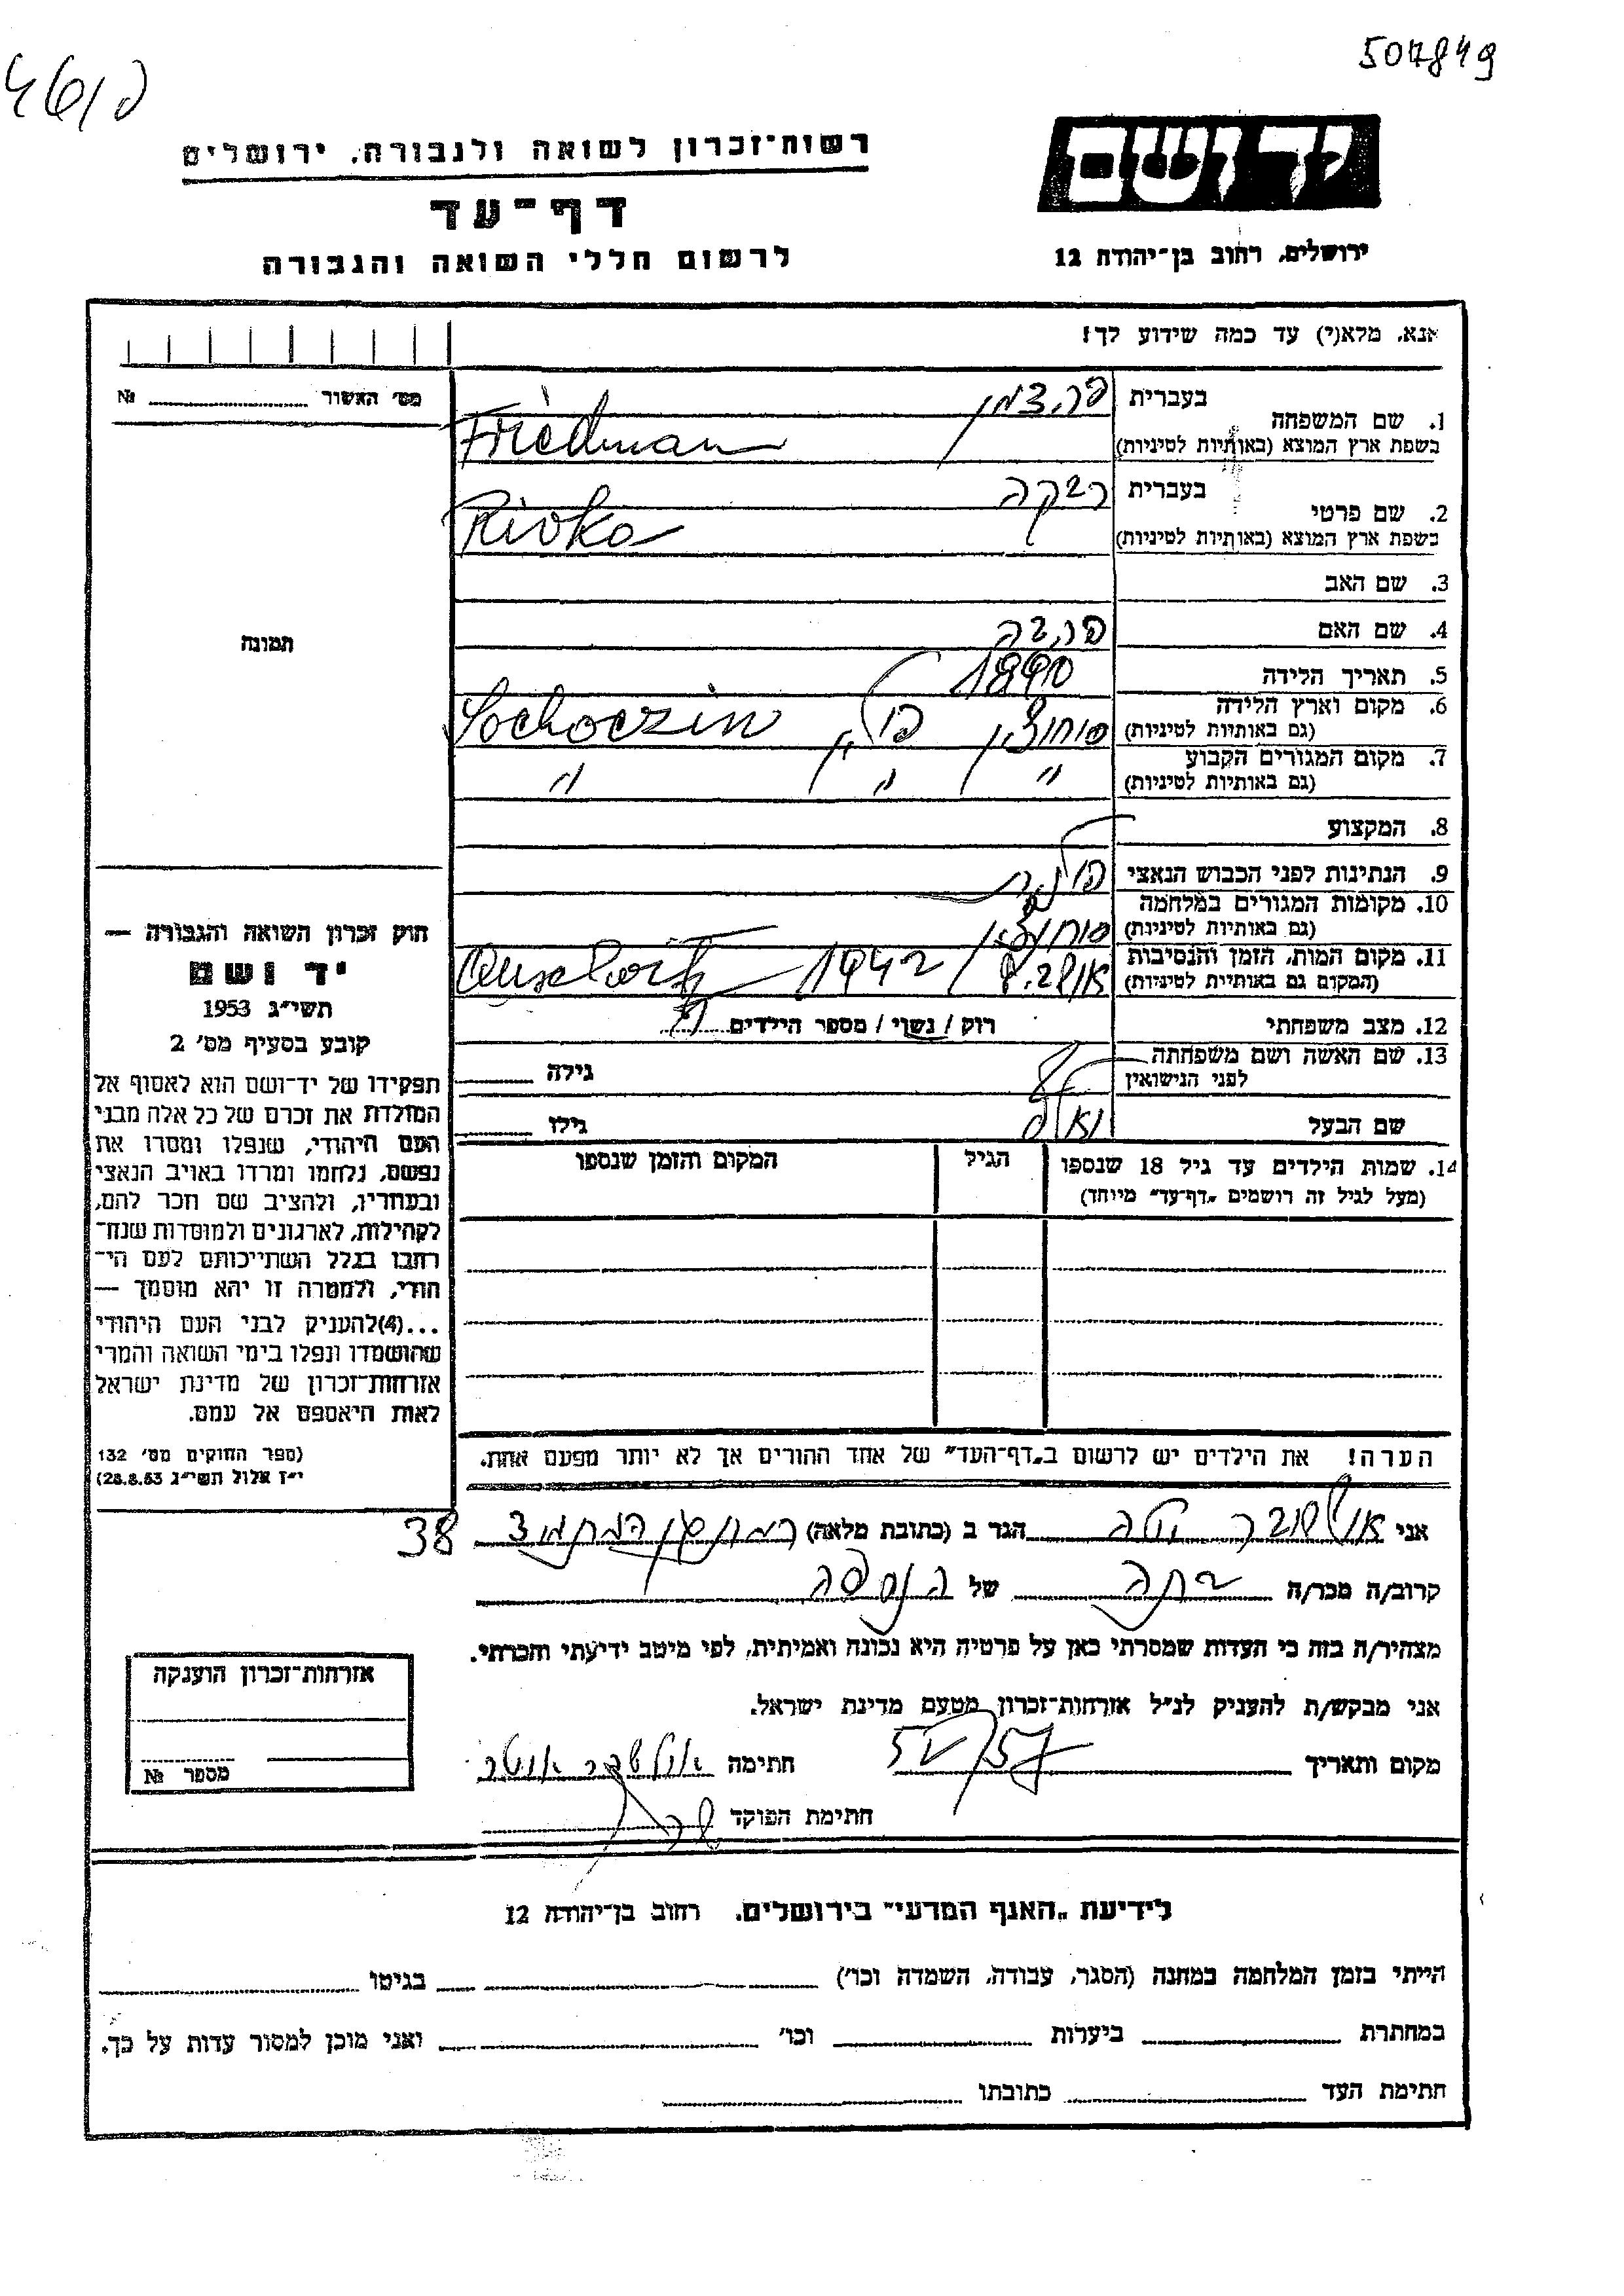 507849
רשות־זכרון לשואה ולגבורה, ירושלים
יד ושם
דף־עד
לרשום חללי השואה והגבורה
ירושלים, רחוב בן־יהודה 12
אנא, מלא(י) עד כמה שידוע לך!
מס' האשור № 
1. שם המשפחה
בעברית פרידמן
בשפת ארץ המוצא (באותיות לטיניות) Friedman
2. שם פרטי
בעברית רבקה
בשפת ארץ המוצא (באותיות לטיניות) Rivka
3. שם האב
4. שם האם
תמונה
5. תאריך הלידה 1890
6. מקום וארץ הלידה
(גם באותיות לטיניות) סוחוצין פולין Sochoczin
7. מקום המגורים הקבוע
(גם באותיות לטיניות) " " "
8. המקצוע
9. הנתינות לפני הכבוש הנאצי פולנית
10. מקומות המגורים במלחמה
(גם באותיות לטיניות) סוחוצין
11. מקום המות, הזמן והנסיבות
(המקום גם באותיות לטיניות) אושביץ 1942
12. מצב משפחתי רוק / נשוי / מספר הילדים
13. שם האשה ושם משפחתה
לפני הנישואין
גילה
שם הבעל
גילו
14. שמות הילדים עד גיל 18 שנספו
(מעל לגיל זה רושמים „דף־עד" מיוחד)
הגיל
המקום והזמן שנספו
הערה! את הילדים יש לרשום ב„דף־העד" של אחד ההורים אך לא יותר מפעם אחת.
חוק זכרון השואה והגבורה —
יד ושם
תשי"ג 1953
קובע בסעיף מס' 2
תפקידו של יד־ושם הוא לאסוף אל
המולדת את זכרם של כל אלה מבני
העם היהודי, שנפלו ומסרו את
נפשם, נלחמו ומרדו באויב הנאצי
ובעוזריו, ולהציב שם וזכר להם,
לקהילות, לארגונים ולמוסדות שנח־
רבו בגלל השתייכותם לעם הי־
הודי, ולמטרה זו יהא מוסמך —
...(4)להעניק לבני העם היהודי
שהושמדו ונפלו בימי השואה והמרי
אזרחות־זכרון של מדינת ישראל
לאות היאספם אל עמם.
(ספר החוקים מס' 132
י"ז אלול תשי"ג 28.8.53)
אני
הגר ב (כתובת מלאה) 38
קרוב/ה מכר/ה בתה של הנספה
מצהיר/ה בזה כי העדות שמסרתי כאן על פרטיה היא נכונה ואמיתית, לפי מיטב ידיעתי והכרתי.
אני מבקש/ת להעניק לנ"ל אזרחות־זכרון מטעם מדינת ישראל.
מקום ותאריך
חתימה
חתימת הפוקד
אזרחות־זכרון הוענקה
מספר №
לידיעת „האגף המדעי" בירושלים, רחוב בן־יהודה 12
הייתי בזמן המלחמה במחנה (הסגר, עבודה, השמדה וכו') בגיטו
במחתרת ביערות וכו' ואני מוכן למסור עדות על כך.
חתימת העד כתובתו